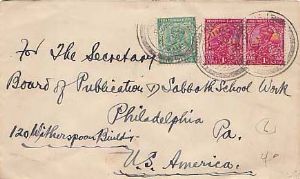 For The Secretary
Board of Publication & Sabbath School Work
Philadelphia
120 Witherspoon Build'g Pa.
U.S. America.